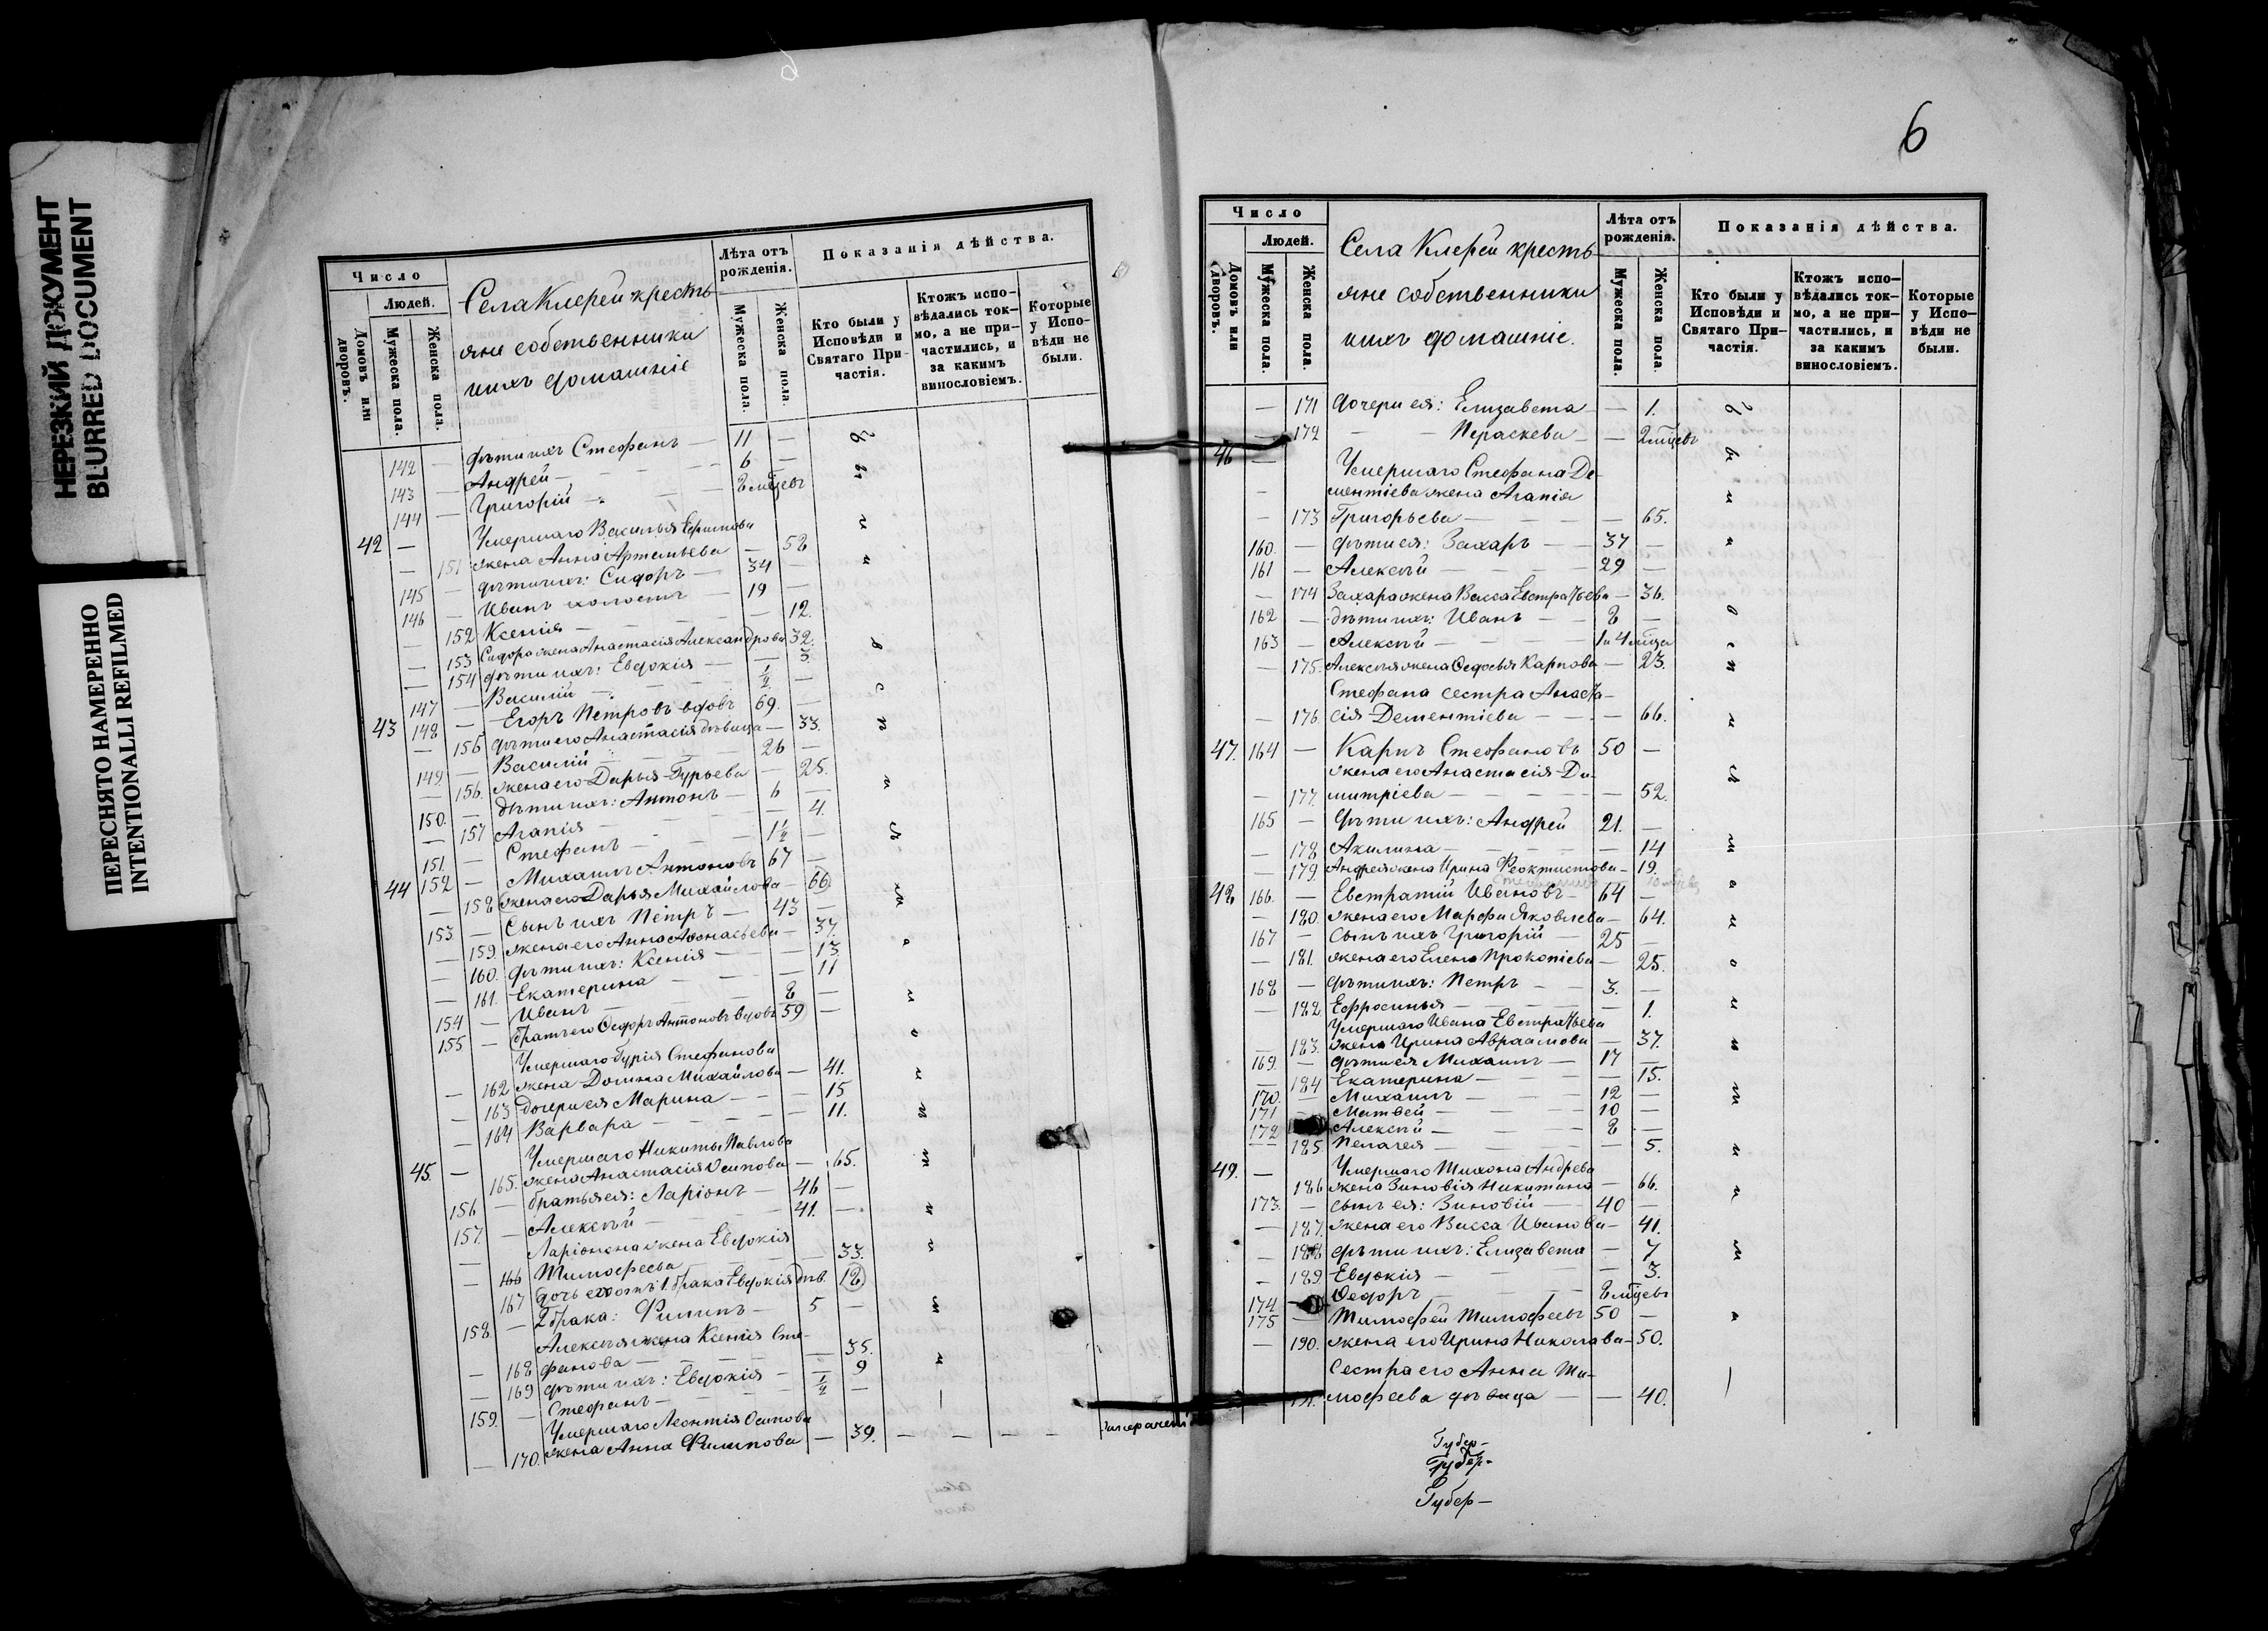 НЕРЕЗКИЙ ДОКУМЕНТ
BLURRED DOCUMENT
ПЕРЕСНЯТО НАМЕРЕННО
INTENTIONALLI REFILMED
Число
Людей.
Домовъ или дворовъ.
Мужеска пола.
Женска пола.
Села Клерей кресть
яне собственники
и ихъ домашніе
Лѣта отъ рожденія.
Мужеска пола.
Женска пола.
Показанія дѣйства.
Кто были у Исповѣди и Святаго Причастія.
Ктожъ исповѣдались токмо, а не причастились, и за какимъ винословіемъ.
Которые у Исповѣди не были.
142 — дѣти ихъ Стефанъ — 11 —
143 — Андрей — 6 —
144 — Григорій — 8 мѣцевъ
42 — Умершаго Василья Ефимова
— 151 жена Анна Артемьева — 58
145 — дѣти ихъ: Сидоръ — 34 —
146 — Иванъ холостъ 19 —
— 152 Ксенія — 12.
— 153 Сидора жена Анастасія Александрова 32.
— 154 дѣти ихъ: Евдокія — 3
147 — Василій — 1/2 —
43 148 — Егоръ Петровъ вдовъ 69. —
— 155 дѣти его Анастасія дѣвица — 33.
149. — Василій — 26 —
— 156. жена его Дарья Гурьева — 25.
150. — дѣти ихъ: Антонъ — 6 —
— 157 Агапія — 4.
151. — Стефанъ — 1 1/2 —
44 152 — Михаилъ Антоновъ 67 —
— 158 жена его Дарья Михайлова — 66
153 — Сынъ ихъ Петръ — 43 —
— 159. жена его Анна Афонасьева — 37.
— 160. дѣти ихъ: Ксенія — 13.
— 161. Екатерина — 11
154 — Иванъ — 8 —
155 — братъ его Ѳедоръ Антоновъ вдовъ 59 —
Умершаго Гурія Стефанова
— 162 жена Домна Михайлова — 41.
— 163 дочери ея Марина — 15
— 164 Варвара — 11.
45. — Умершаго Никиты Павлова
165. жена Анастасія Осипова — 65.
156 — братья ея: Ларіонъ — 46 —
157. — Алексѣй — 41. —
Ларіонана жена Евдокія
— 166 Тимофеева — 33.
167 дочь его отъ 1 брака Евдокія дѣв. 18
158. — 2 брака: Филипъ — 5 —
Алексѣя жена Ксенія Сте-
— 168 фанова — 35.
— 169 дѣти ихъ: Евдокія — 9
159. — Стефанъ — 1/2 —
Умершаго Леонтія Осипова
— 170. жена Анна Филипова — 39. — — — —
6
Число
Людей.
Домовъ или дворовъ.
Мужеска пола.
Женска пола.
Села Клерей кресть
яне собственники
и ихъ домашніе.
Лѣта отъ рожденія.
Мужеска пола.
Женска пола.
Показанія дѣйства.
Кто были у Исповѣди и Святаго Причастія.
Ктожъ исповѣдались токмо, а не причастились, и за какимъ винословіемъ.
Которые у Исповѣди не были.
— 171 дочери ея: Елизавета — 1.
— 172 — Параскева — 2 мѣцевъ
46 — Умершаго Стефана Де-
— ментіева жена Агапія
— 173 Григорьева — 65.
160. — дѣти ея: Захаръ — 37 —
161 — Алексѣй — 29 —
— 174 Захара жена Васса Евстратьева — 36.
162 — дѣти ихъ: Иванъ — 8 —
163 — Алексѣй — 1 и 4 мѣца
— 175. Алексѣя жена Ѳедосья Карпова — 23.
Стефана сестра Анаста-
— 176. сія Дементіева — 66.
47. 164 — Карпъ Стефановъ 50 —
жена его Анастасія Ди-
— 177. митріева — 52.
165 — Дѣти ихъ: Андрей 21. —
— 178 Акилина — 14
— 179. Андрея жена Ирина Феоктистова — 19.
48 166. — Евстратій Ивановъ — 64 —
— 180. жена его Марфа Яковлева — 64.
167 — Сынъ ихъ Григорій — 25 —
— 181. жена его Елена Прокопіева — 25.
168 — дѣти ихъ: Петръ — 3. —
— 182 Ефросинья — 1.
Умершаго Ивана Евстратьева
— 183. жена Ирина Авраамова — 37.
169. — дѣти ея Михаилъ — 17 —
— 184 Екатерина — 15.
170. — Михаилъ — 12 —
171 — Матвей — 10 —
172 Алексѣй — 8 —
— 185 Пелагея — 5.
49. — Умершаго Тихона Андреева
186 жена Зиновія Никитина — 66.
173. — сынъ ея: Зиновій — 40 —
— 187. жена его Васса Иванова — 41.
— 188 дѣти ихъ: Елизавета — 7
— 189. Евдокія — 3.
174 — Ѳедоръ — 8 мѣцевъ
175 — Тимофей Тимофеевъ 50 —
— 190. жена его Ирина Николаева — 50.
Сестра его Анна Ти-
191. мофеева дѣвица — 40.
Губер—
Губер-
Губер—